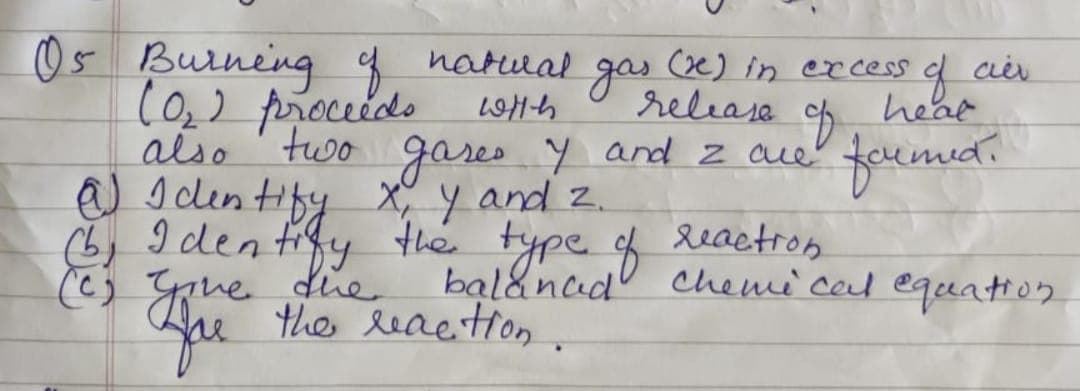 Q5 Burning of natural gas (x) in excess of air
(O₂) proceeds with release of heat
also two gases y and z are formed.
a) Identify x, y and z.
(b) Identify the type of reaction
(c) Give the balanced chemical equation
for the reaction.